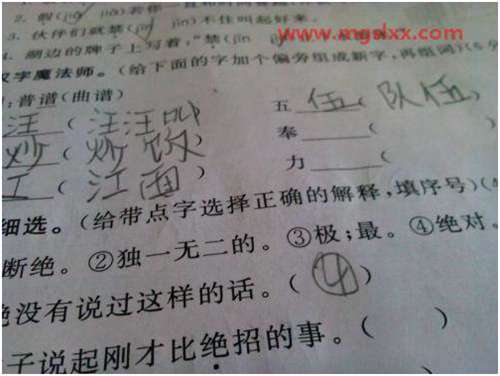 www.mgslxx.com
3. 伙伴们就禁(jīn jìn)不住叫起好来。
4. 湖边的牌子上写着,"禁(jīn
汉字魔法师。(给下面的字加个偏旁组成新字,再组词)(6分
:普谱(曲谱)
五 伍 (队伍)
汪 (汪汪叫
奉 (
炒 (炒饭
力 (
工 (江面)
细选。(给带点字选择正确的解释,填序号)(4
断绝。②独一无二的。③极;最。④绝对。
绝没有说过这样的话。(④)
子说起刚才比绝招的事。( )